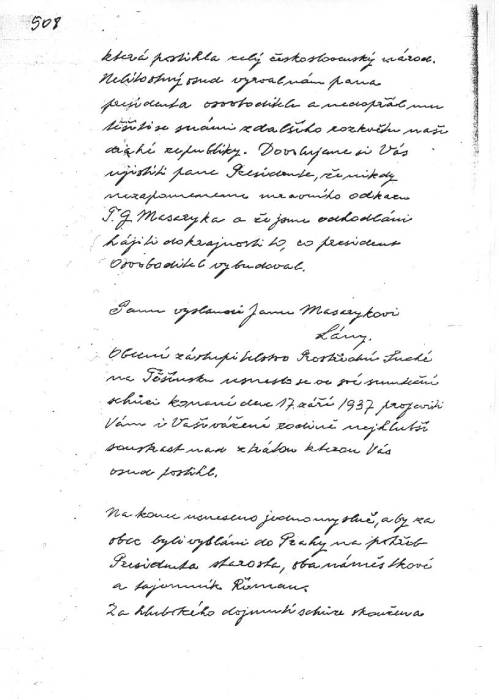 508
která postihla celý československý národ.
Nelítostný osud vyrval nám pana
presidenta osvoboditele a nedopřál mu
těšiti se s námi z dalšího rozkvětu naší
drahé republiky. Dovolujeme si Vás
ujistiti pane Presidente, že nikdy
nezapomeneme mravního odkazu
T. G. Masaryka a že jsme odhodláni
hájiti do krajnosti to, co president
Osvoboditel vybudoval.
Panu vyslanci Janu Masarykovi
Lány.
Obecní zastupitelstvo Prostřední Suché
na Těšínsku usneslo se ve své smuteční
schůzi konané dne 17. září 1937 projeviti
Vám i Vaší vážené rodině nejhlubší
soustrast nad ztrátou kterou Vás
osud postihl.
Na konec usneseno jednomyslně, aby za
obec byli vysláni do Prahy na pohřeb
Presidenta starosta, oba náměstkové
a tajemník Roman.
Za hlubokého dojmutí schůze skončena